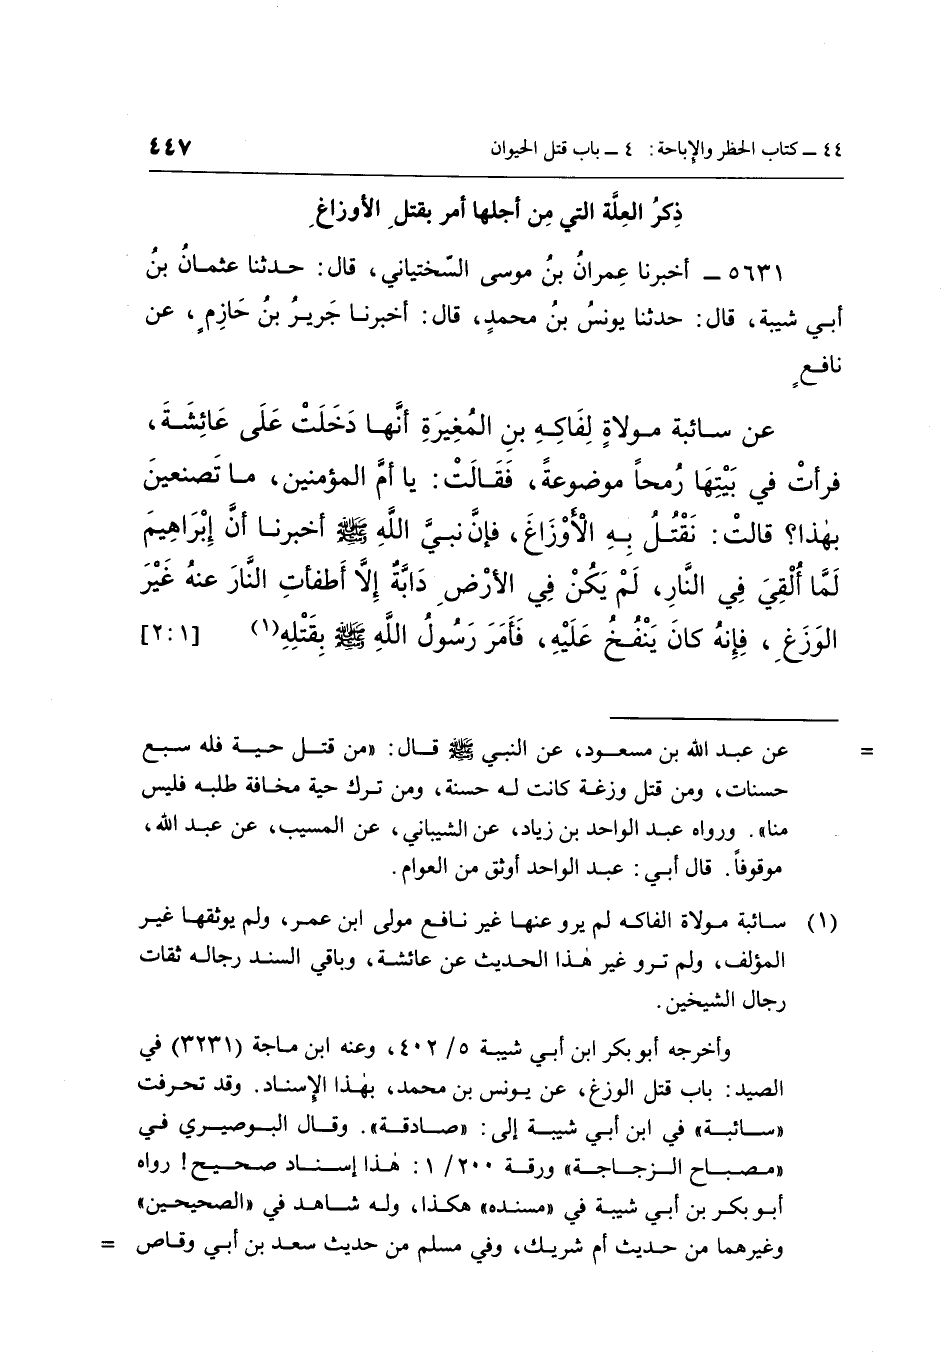 ٤٤ ـ كتاب الحظر والإباحة: ٤ ـ باب قتل الحيوان ٤٤٧
ذِكرُ العِلَّة التي مِن أجلها أمر بقتلِ الأوزاغِ
٥٦٣١ ـ أخبرنا عِمرانُ بنُ موسى السَّختياني، قال: حدثنا عثمانُ بنُ
أبي شيبة، قال: حدثنا يونسُ بنُ محمدٍ، قال: أخبرنا جَريرُ بنُ حَازِمٍ، عن
نافعٍ
عن سائبة مولاةٍ لِفَاكِهِ بنِ المُغِيرَةِ أنَّها دَخَلَتْ عَلَى عَائِشَةَ،
فرأتْ في بَيْتِهَا رُمحاً موضوعةً، فَقَالَتْ: يا أمَّ المؤمنين، ما تَصنعينَ
بهٰذا؟ قالتْ: نَقْتُلُ بِهِ الْأَوْزَاغَ، فإنَّ نبيَّ اللَّهِ ﷺ أخبرنا أنَّ إِبْرَاهِيمَ
لَمَّا أُلْقِيَ فِي النَّارِ، لَمْ يَكُنْ فِي الأرْضِ دَابَّةٌ إلَّا أَطفأتِ النَّارَ عنهُ غَيْرَ
الوَزَغِ، فإنهُ كانَ يَنْفُخُ عَلَيْهِ، فَأَمَرَ رَسُولُ اللَّهِ ﷺ بِقَتْلِهِ(١) [٢:١]
= عن عبد الله بن مسعود، عن النبي ﷺ قال: «من قتل حية فله سبع
حسنات، ومن قتل وزغة كانت له حسنة، ومن ترك حية مخافة طلبه فليس
منا». ورواه عبد الواحد بن زياد، عن الشيباني، عن المسيب، عن عبد الله،
موقوفاً. قال أبي: عبد الواحد أوثق من العوام.
(١) سائبة مولاة الفاكه لم يرو عنها غير نافع مولى ابن عمر، ولم يوثقها غير
المؤلف، ولم ترو غير هٰذا الحديث عن عائشة، وباقي السند رجاله ثقات
رجال الشيخين.
وأخرجه أبو بكر ابن أبي شيبة ٤٠٢/٥، وعنه ابن ماجة (٣٢٣١) في
الصيد: باب قتل الوزغ، عن يونس بن محمد، بهٰذا الإسناد. وقد تحرفت
«سائبة» في ابن أبي شيبة إلى: «صادقة». وقال البوصيري في
«مصباح الزجاجة» ورقة ١/٢٠٠: هٰذا إسناد صحيح! رواه
أبو بكر بن أبي شيبة في «مسنده» هكذا، وله شاهد في «الصحيحين»
وغيرهما من حديث أم شريك، وفي مسلم من حديث سعد بن أبي وقاص =